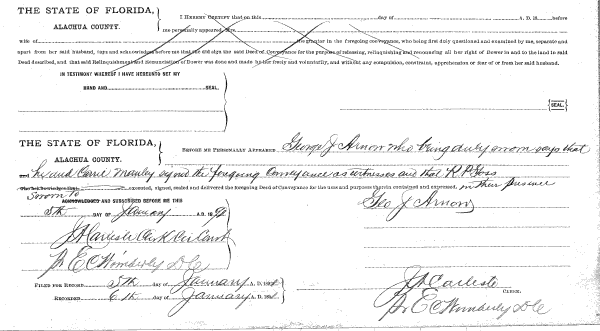 THE STATE OF FLORIDA,
ALACHUA COUNTY.
I HEREBY CERTIFY that on this day of A. D. 18 before
me personally appeared Mrs.
wife of the grantor in the foregoing conveyance, who being first duly questioned and examined by me, separate and
apart from her said husband, says and acknowledges before me that she did sign the said Deed of Conveyance for the purpose of releasing, relinquishing and renouncing all her right of Dower in and to the land in said
Deed described, and that said Relinquishment and Renunciation of Dower was done and made by her freely and voluntarily, and without any compulsion, constraint, apprehension or fear of or from her said husband.
IN TESTIMONY WHEREOF I HAVE HEREUNTO SET MY
HAND AND SEAL,
SEAL
THE STATE OF FLORIDA,
ALACHUA COUNTY.
BEFORE ME PERSONALLY APPEARED George J Arnow who being duly sworn says that
he and Carrie Manley signed the foregoing Conveyance as witnesses and that R P
executed, signed, sealed and delivered the foregoing Deed of Conveyance for the uses and purposes therein contained and expressed, in their presence
Sworn to
ACKNOWLEDGED AND SUBSCRIBED BEFORE ME THIS
5th DAY OF January A. D. 18
Geo J Arnow
J A Carlisle Clerk Cir Court
Pr E C Wimberly D C
FILED FOR RECORD 5th day of January A. D. 18
RECORDED 6th day of January A. D. 18
J A Carlisle
CLERK.
Pr E C Wimberly D C